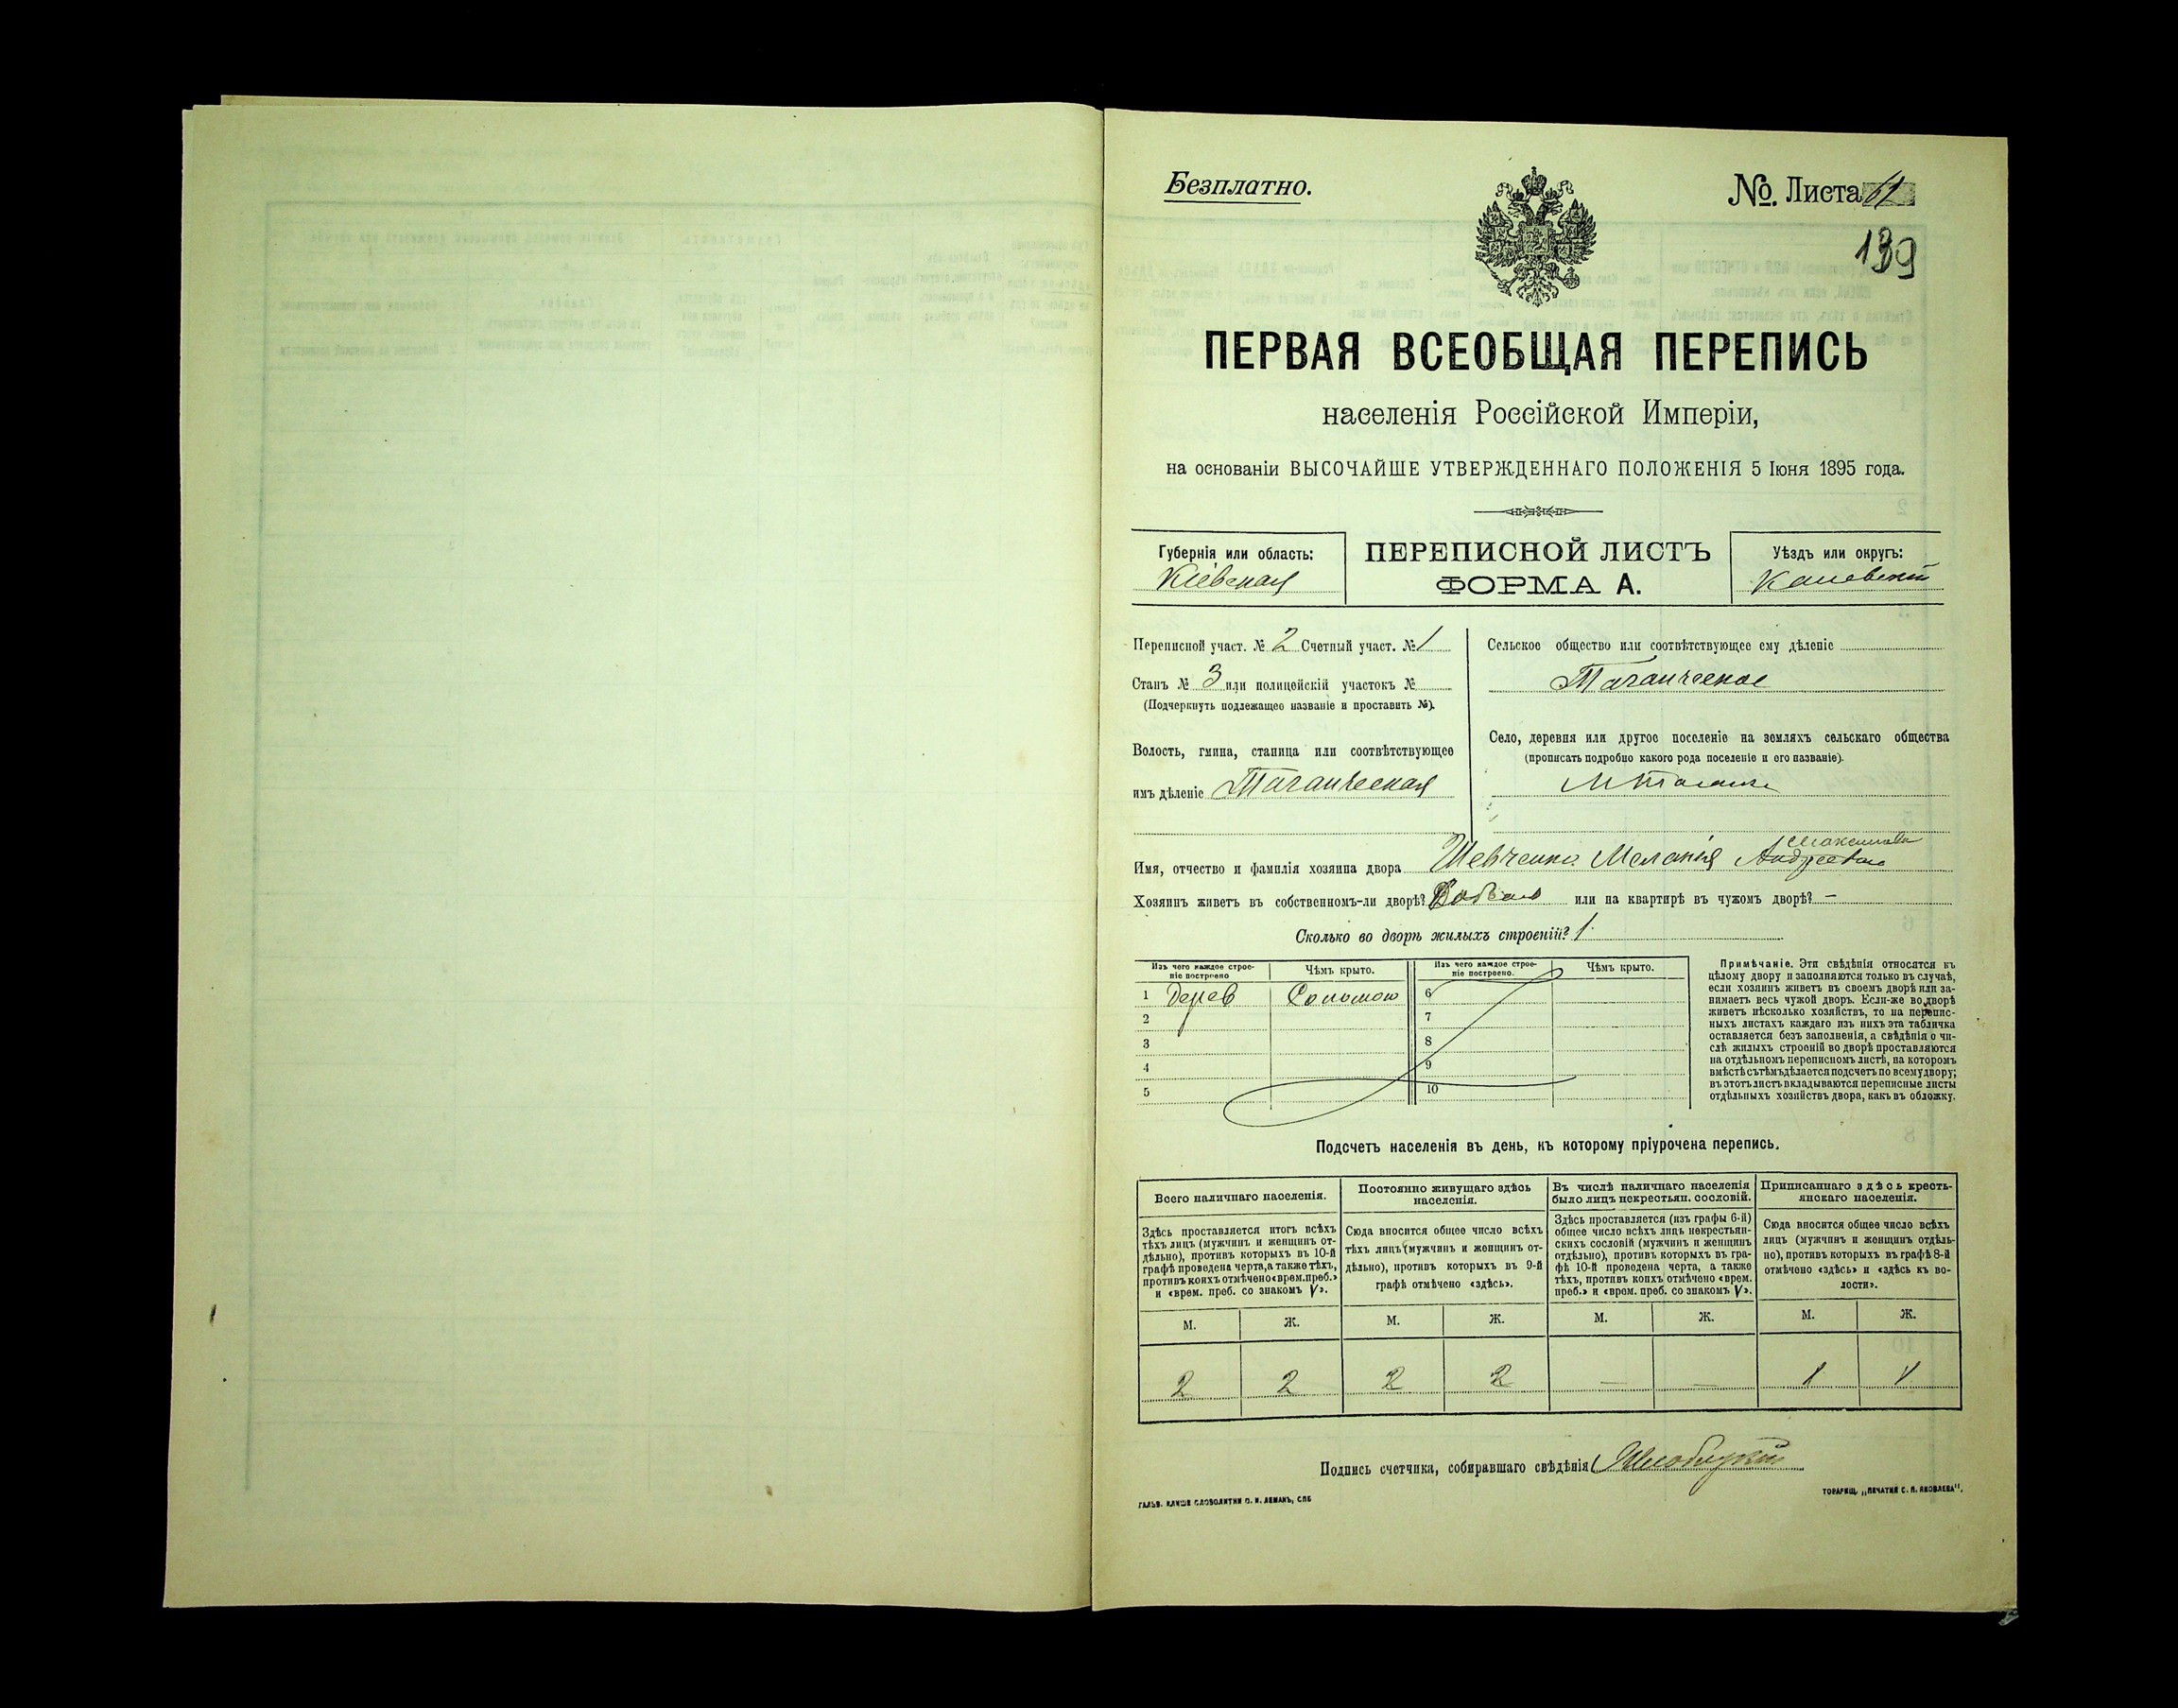 Безплатно.
№. Листа 61
139
ПЕРВАЯ ВСЕОБЩАЯ ПЕРЕПИСЬ
населенія Россійской Имперіи,
на основаніи ВЫСОЧАЙШЕ УТВЕРЖДЕННАГО ПОЛОЖЕНІЯ 5 Іюня 1895 года.
Губернія или область:
Кіевская
ПЕРЕПИСНОЙ ЛИСТЪ
ФОРМА А.
Уѣздъ или округъ:
Каневскій
Переписной участ. № 2 Счетный участ. № 1
Станъ № 3 или полицейскій участокъ №
(Подчеркнуть подлежащее названіе и проставить №).
Волость, гмина, станица или соотвѣтствующее
имъ дѣленіе Таганческая
Сельское общество или соотвѣтствующее ему дѣленіе
Таганческое
Село, деревня или другое поселеніе на земляхъ сельскаго общества
(прописать подробно какого рода поселеніе и его названіе).
М Таганча
Максимова
Имя, отчество и фамилія хозяина двора Шевченко Меланія Андреева
Хозяинъ живетъ въ собственномъ-ли дворѣ? или на квартирѣ въ чужомъ дворѣ? —
Сколько во дворѣ жилыхъ строеній? 1
Изъ чего каждое строе-
ніе построено
Чѣмъ крыто.
Изъ чего каждое строе-
ніе построено.
Чѣмъ крыто.
1 Дерев Соломою 6
2 7
3 8
4 9
5 10
Примѣчаніе. Эти свѣдѣнія относятся къ
цѣлому двору и заполняются только въ случаѣ,
если хозяинъ живетъ въ своемъ дворѣ или за-
нимаетъ весь чужой дворъ. Если-же во дворѣ
живетъ нѣсколько хозяйствъ, то на перепис-
ныхъ листахъ каждаго изъ нихъ эта табличка
оставляется безъ заполненія, а свѣдѣнія о чи-
слѣ жилыхъ строеній во дворѣ проставляются
на отдѣльномъ переписномъ листѣ, на которомъ
вмѣстѣ съ тѣмъ дѣлается подсчетъ по всему двору;
въ этотъ листъ вкладываются переписные листы
отдѣльныхъ хозяйствъ двора, какъ въ обложку.
Подсчетъ населенія въ день, къ которому пріурочена перепись.
Всего наличнаго населенія.
Здѣсь проставляется итогъ всѣхъ
тѣхъ лицъ (мужчинъ и женщинъ от-
дѣльно), противъ которыхъ въ 10-й
графѣ проведена черта, а также тѣхъ,
противъ коихъ отмѣчено «врем. преб.»
и «врем. преб. со знакомъ V».
Постоянно живущаго здѣсь
населенія.
Сюда вносится общее число всѣхъ
тѣхъ лицъ (мужчинъ и женщинъ от-
дѣльно), противъ которыхъ въ 9-й
графѣ отмѣчено «здѣсь».
Въ числѣ наличнаго населенія
было лицъ некрестьян. сословій.
Здѣсь проставляется (изъ графы 6-й)
общее число всѣхъ лицъ некрестьян-
скихъ сословій (мужчинъ и женщинъ
отдѣльно), противъ которыхъ въ гра-
фѣ 10-й проведена черта, а также
тѣхъ, противъ коихъ отмѣчено «врем.
преб.» и «врем. преб. со знакомъ V».
Приписаннаго здѣсь кресть-
янскаго населенія.
Сюда вносится общее число всѣхъ
лицъ (мужчинъ и женщинъ отдѣль-
но), противъ которыхъ въ графѣ 8-й
отмѣчено «здѣсь» и «здѣсь къ во-
лости».
М. Ж. М. Ж. М. Ж. М. Ж.
2 2 2 2 — — 1 1
Подпись счетчика, собиравшаго свѣдѣнія
ГАЛЬВ. КЛИШЕ СЛОВОЛИТНИ О. И. ЛЕМАНЪ, СПБ
ТОВАРИЩ. „ПЕЧАТНЯ С. П. ЯКОВЛЕВА".